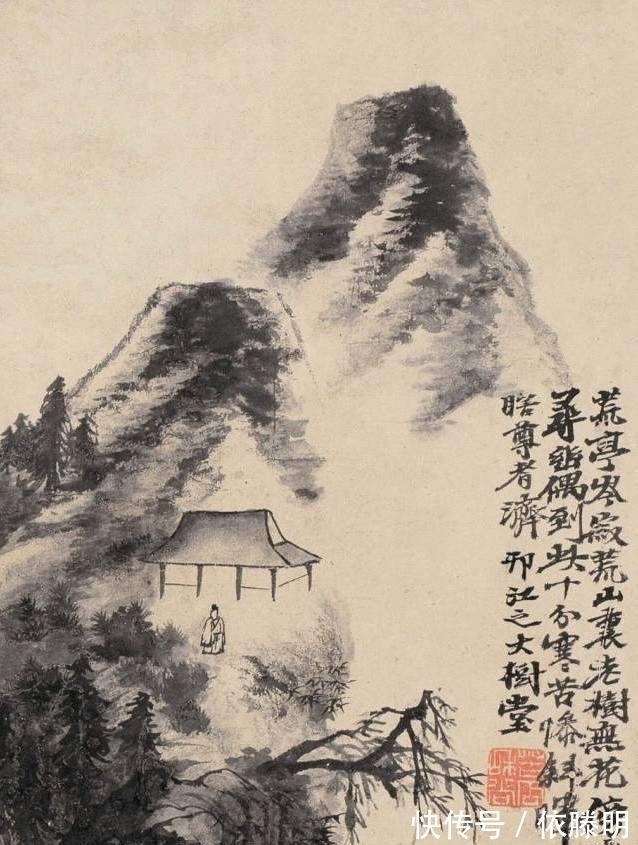 荒亭岑寂荒山裏老樹無花
尋偶到此十分寒苦慘斜
瞎尊者濟 邗江之大樹堂
快传号 / 依滕明